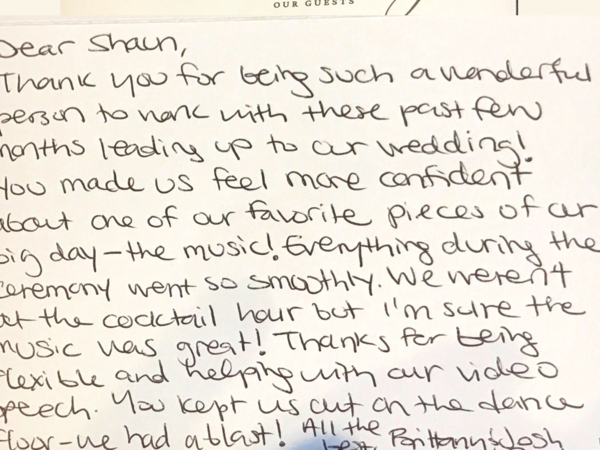 OUR GUESTS
Dear Shaun,
Thank you for being such a wonderful
person to work with these past few
months leading up to our wedding!
You made us feel more confident
about one of our favorite pieces of our
big day - the music! Everything during the
ceremony went so smoothly. We weren't
at the cocktail hour but I'm sure the
music was great! Thanks for being
flexible and helping with our video
speech. You kept us out on the dance
floor - we had a blast! All the
best, Brittany & Josh